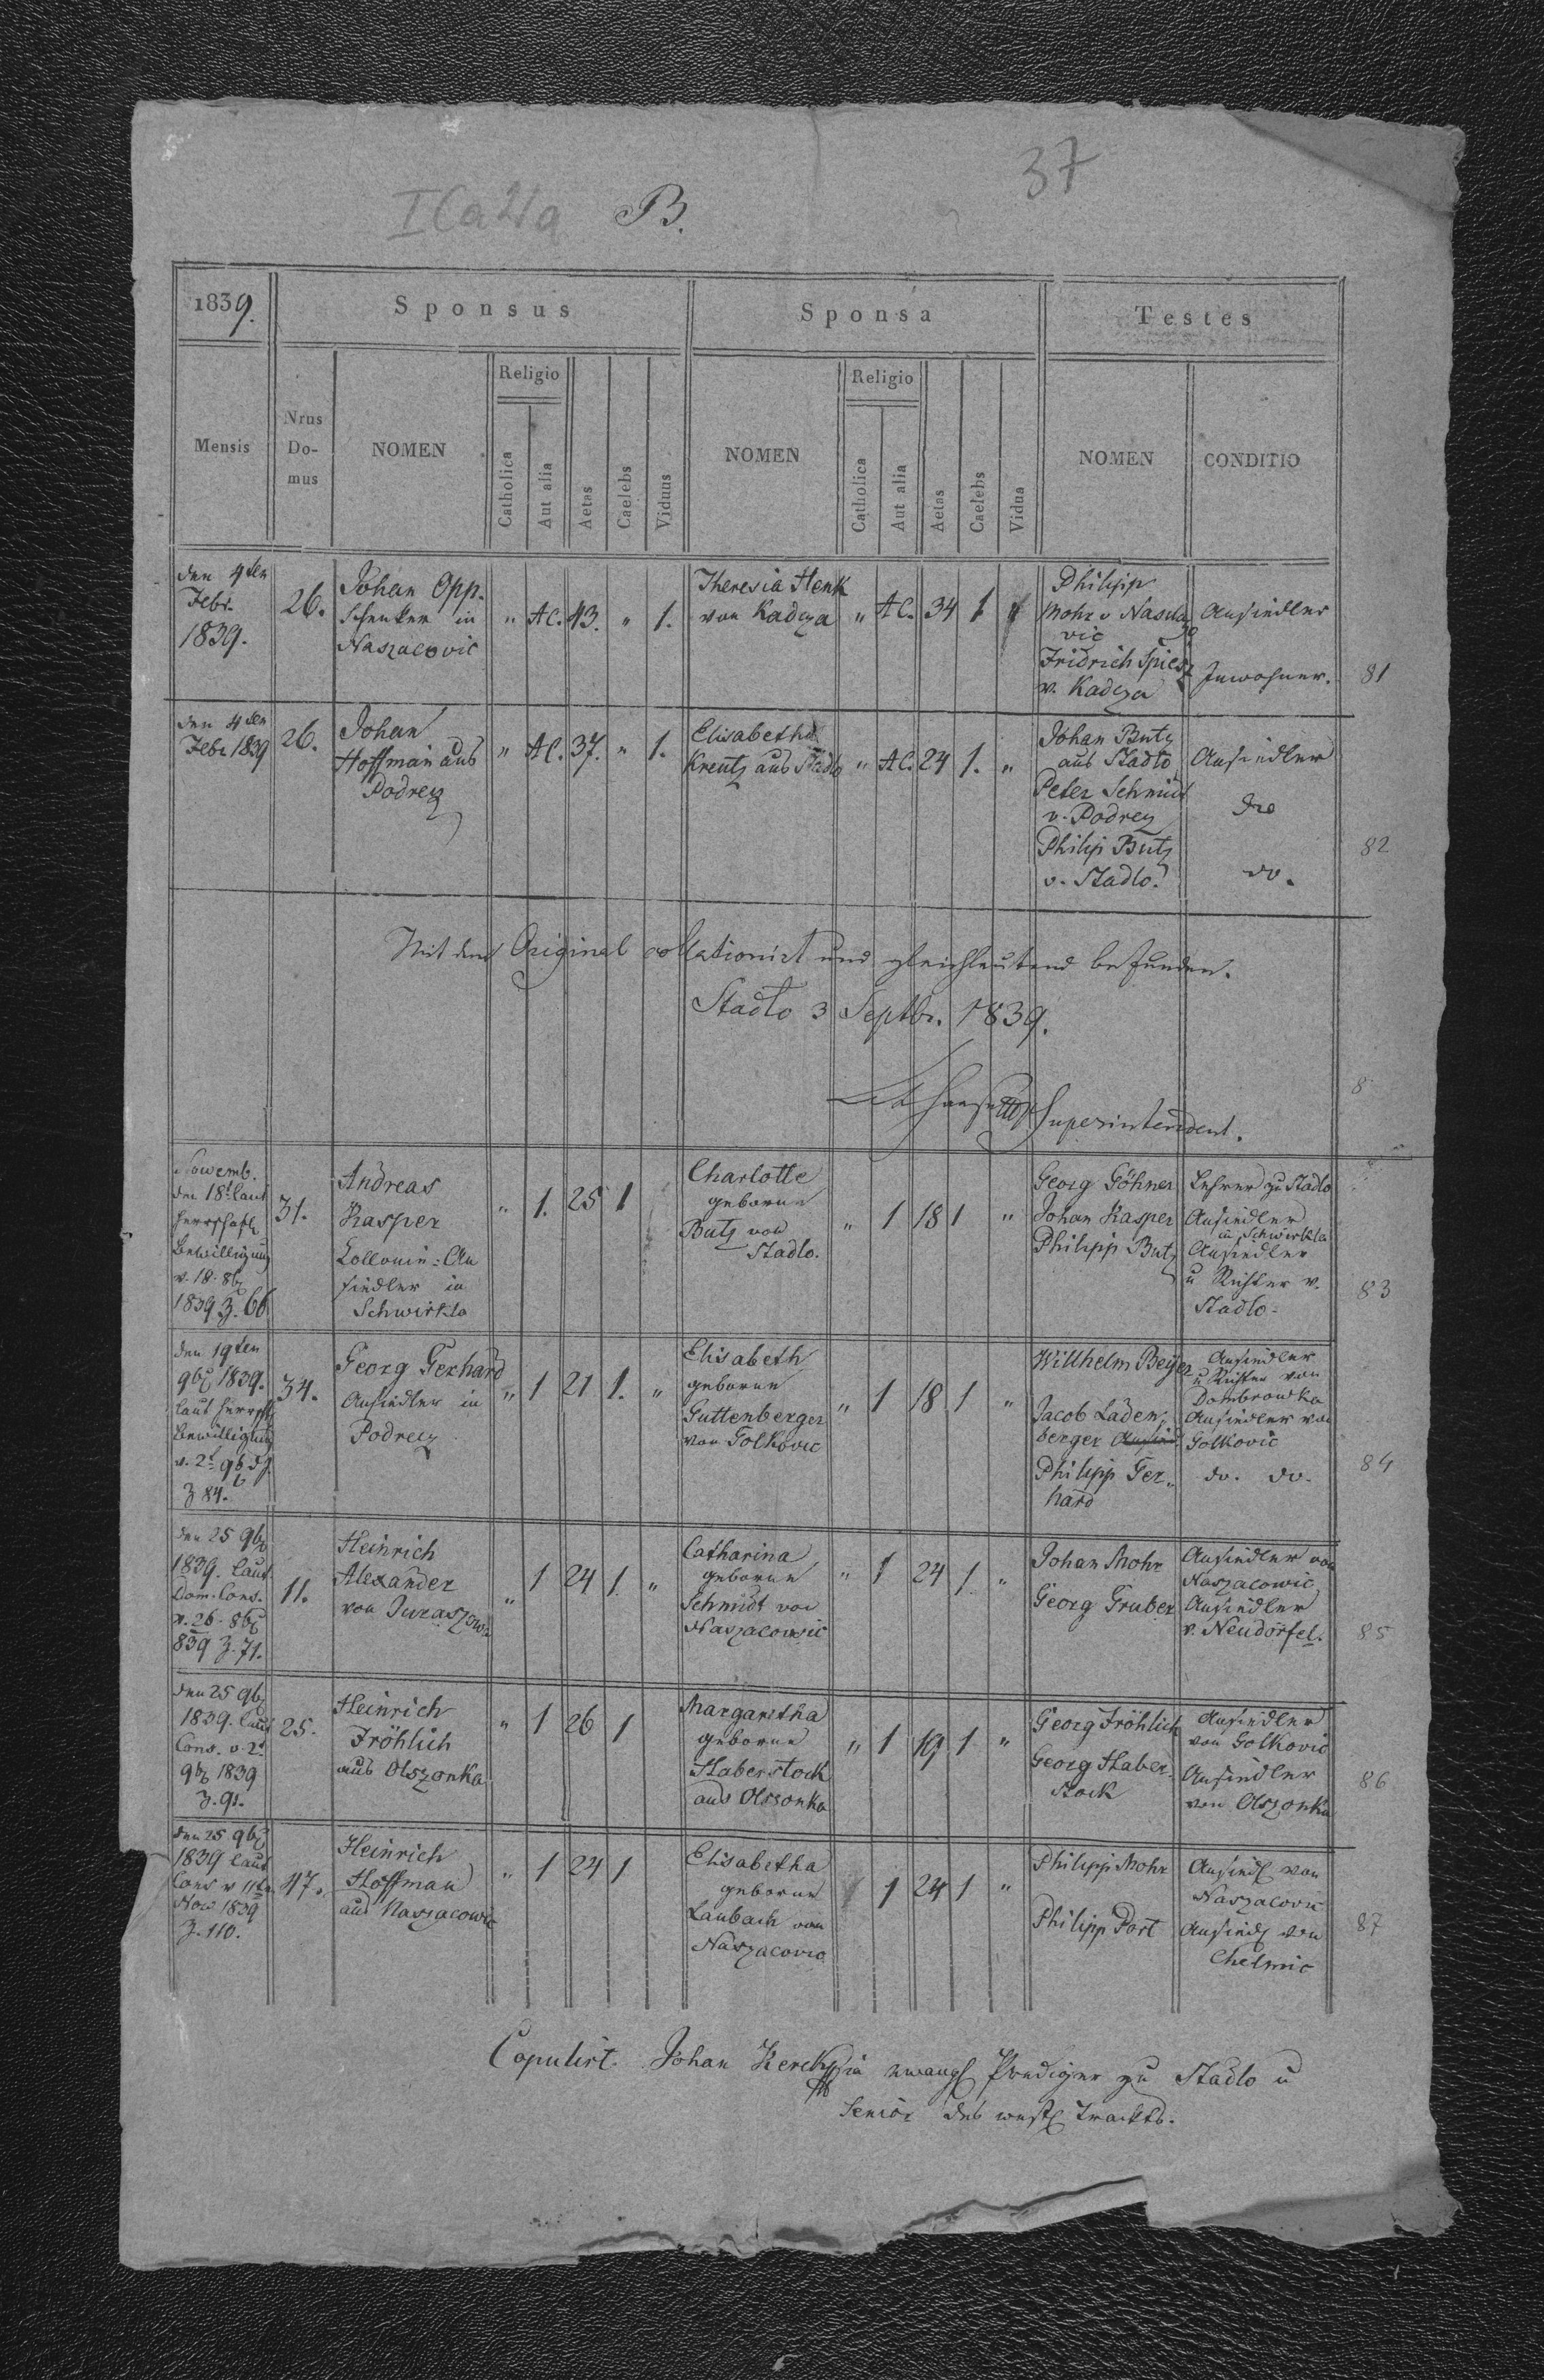 37
B.
1839.
Sponsus
Sponsa
Testes
Mensis
Nrus Do- mus
NOMEN
Religio
Catholica
Aut alia
Aetas
Caelebs
Viduus
NOMEN
Religio
Catholica
Aut alia
Aetas
Caelebs
Vidua
NOMEN
CONDITIO
den 4ten
Febr.
1839.
26.
Johan Opp.
Schenker in
Naszacovic
" A.C. 43. " 1.
Theresia Henk
von Kadcza
" A.C. 34 1 "
Philipp
Mohr v Naszaco
vic
Fridrich Spiesz
v. Kadcza
Ansiedler
Inwohner.
81
den 4ten
Febr 1839
26.
Johan
Hoffman aus
Podrecz
" A.C. 37. " 1.
Elisabetha
Kreutz aus Stadlo
" A.C. 24 1. "
Johan Butz
aus Stadlo
Peter Schmidt
v. Podrecz
Philip Butz
v. Stadlo.
Ansiedler
dto
do.
82
Mit dem Original collationirt und gleichlautend befunden.
Stadlo 3 Septbr. 1839.
Superintendent.
8
Novemb.
den 18t laut
herrschaftl
Bewilligung
v. 18. 8br
1839 Z. 66
31.
Andreas
Kasper
Collonie-An
siedler in
Schwirkla
" 1. 25 1
Charlotte
geborne
Butz von
Stadlo.
" 1 18 1 "
Georg Göhner
Johan Kasper
Philipp Butz
Lehrer zu Stadlo
Ansiedler
in Schwirkla
Ansiedler
u Richter v.
Stadlo.
83
den 19ten
9br 1839.
laut herrschftl
Bewilligung
v. 2t 9br
Z 84.
34.
Georg Gerhard
Ansiedler in
Podrecz
" 1 21 1. "
Elisabeth
geborne
Guttenberger
von Golkovic
" 1 18 1 "
Willhelm Beyer
Jacob Laden-
berger
Philipp Ger-
hard
Ansiedler
u Richter von
Dombrowka
Ansiedler von
Golkovic
do. do.
84
den 25 9br
1839. laut
Dom. Cons.
v. 26. 8br
839 Z. 71.
11.
Heinrich
Alexander
von Juraszow.
" 1 24 1. "
Catharina
geborne
Schmidt von
Naszacowic
" 1 24 1. "
Johan Mohr
Georg Gruber
Ansiedler von
Naszacowic
Ansiedler
v. Neudörfel.
85
den 25 9br
1839. laut
Cons. v. 2t
9br 1839
Z. 91.
25.
Heinrich
Fröhlich
aus Olszonka
" 1 26 1
Margaretha
geborne
Haberstock
aus Olszonka
" 1 19 1 "
Georg Fröhlich
Georg Haber-
stock
Ansiedler
von Golkovic
Ansiedler
von Olszonka
86
den 25 9br
1839 laut
Cons v 11t
Nov 1839
Z. 110.
47.
Heinrich
Hoffman
aus Naszacowic
" 1 24 1
Elisabetha
geborne
Laubach von
Naszacovic
1 24 1 "
Philipp Mohr
Philipp Port
Ansiedl von
Naszacovic
Ansiedl von
Chelmic
87
Copulirt. Johan evangl Prediger zu Stadlo u
Senior des westl Tracktts.